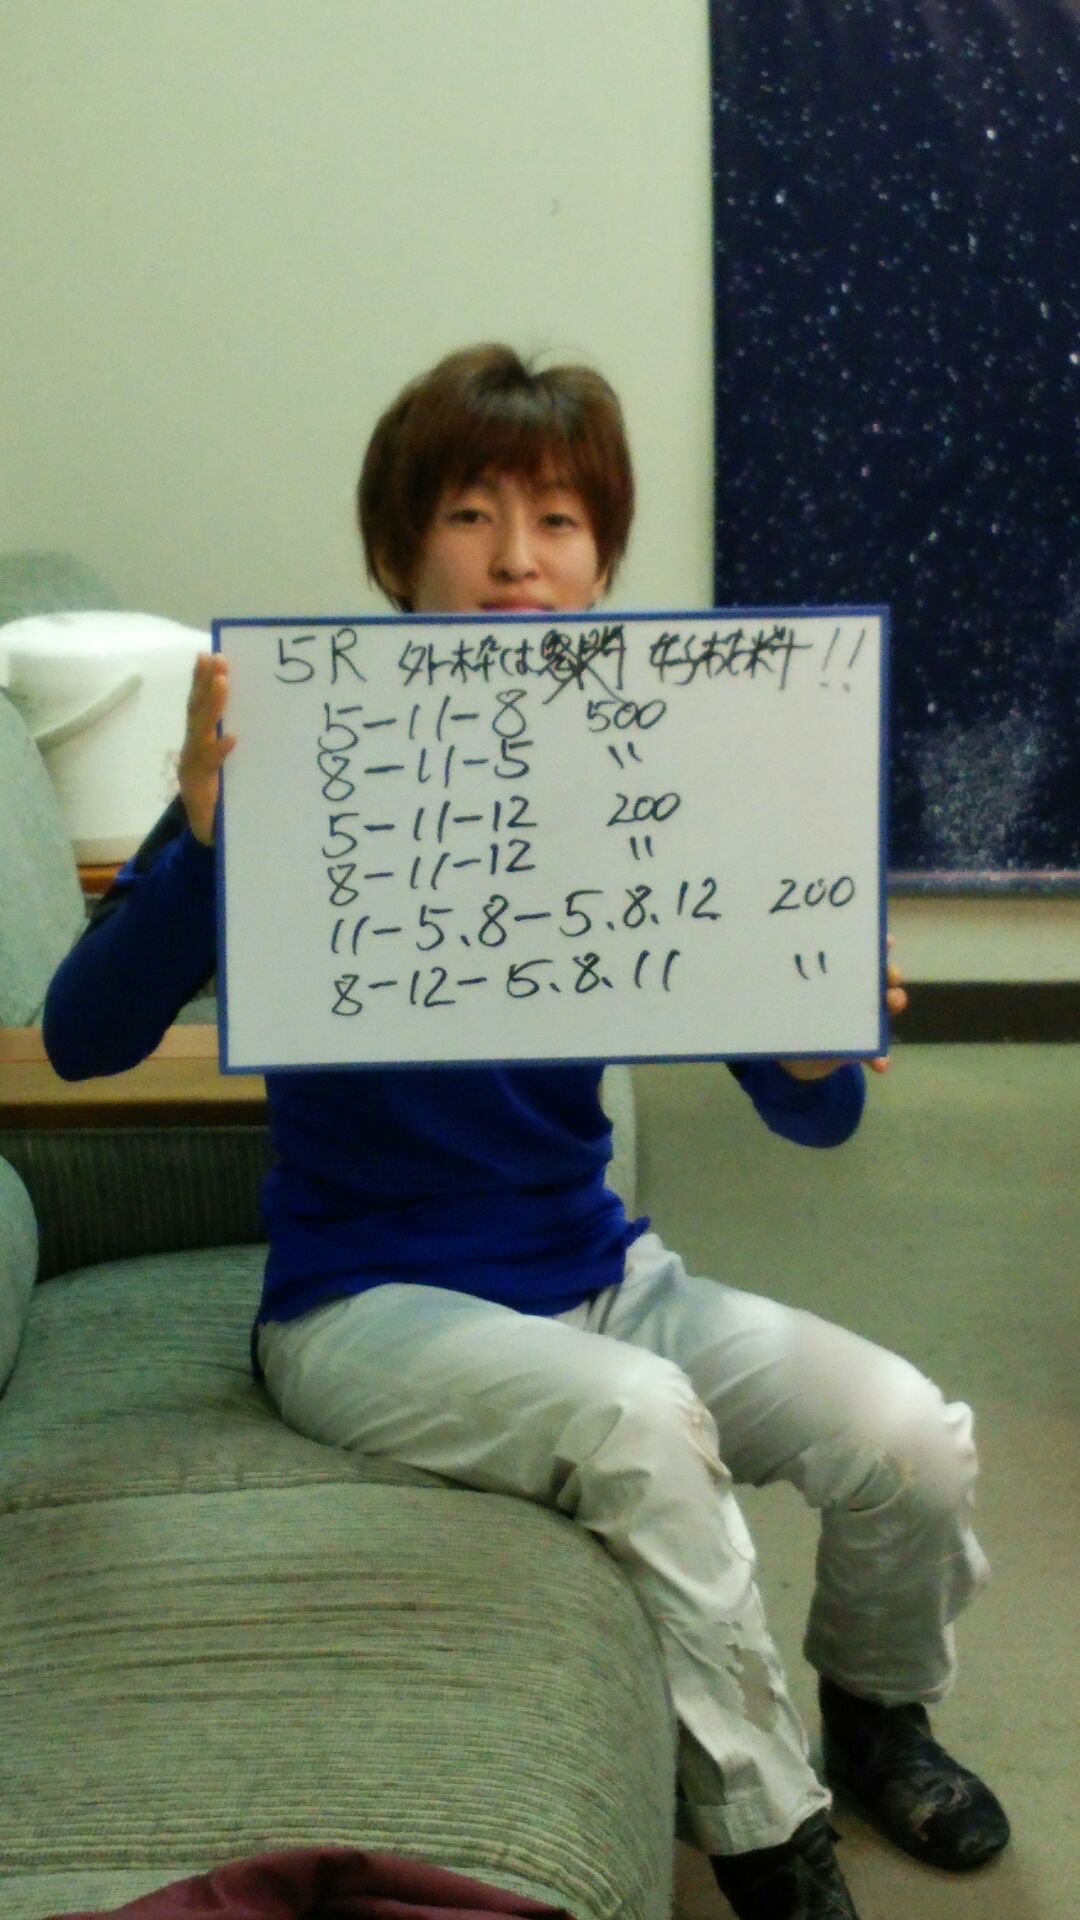 5R 外枠は 好材料!!
5-11-8 500
8-11-5 〃
5-11-12 200
8-11-12 〃
11-5、8-5.8、12 200
8-12-5、8、11 〃